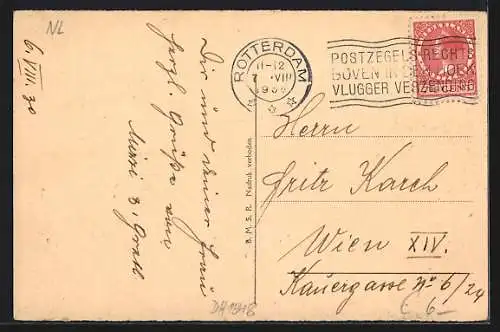 NL
6 VIII. 30
Dir und deiner Frau
herzl. Grüße von
Mirzi &
B. M. S. R. Nadruk verboden.
ROTTERDAM
11-12
VIII
POSTZEGELS RECHTS
BOVEN IN DEN HOEK
VLUGGER VERZENDING
Herrn
Fritz Karch
Wien XIV.
Kauergasse No 6/24
6-